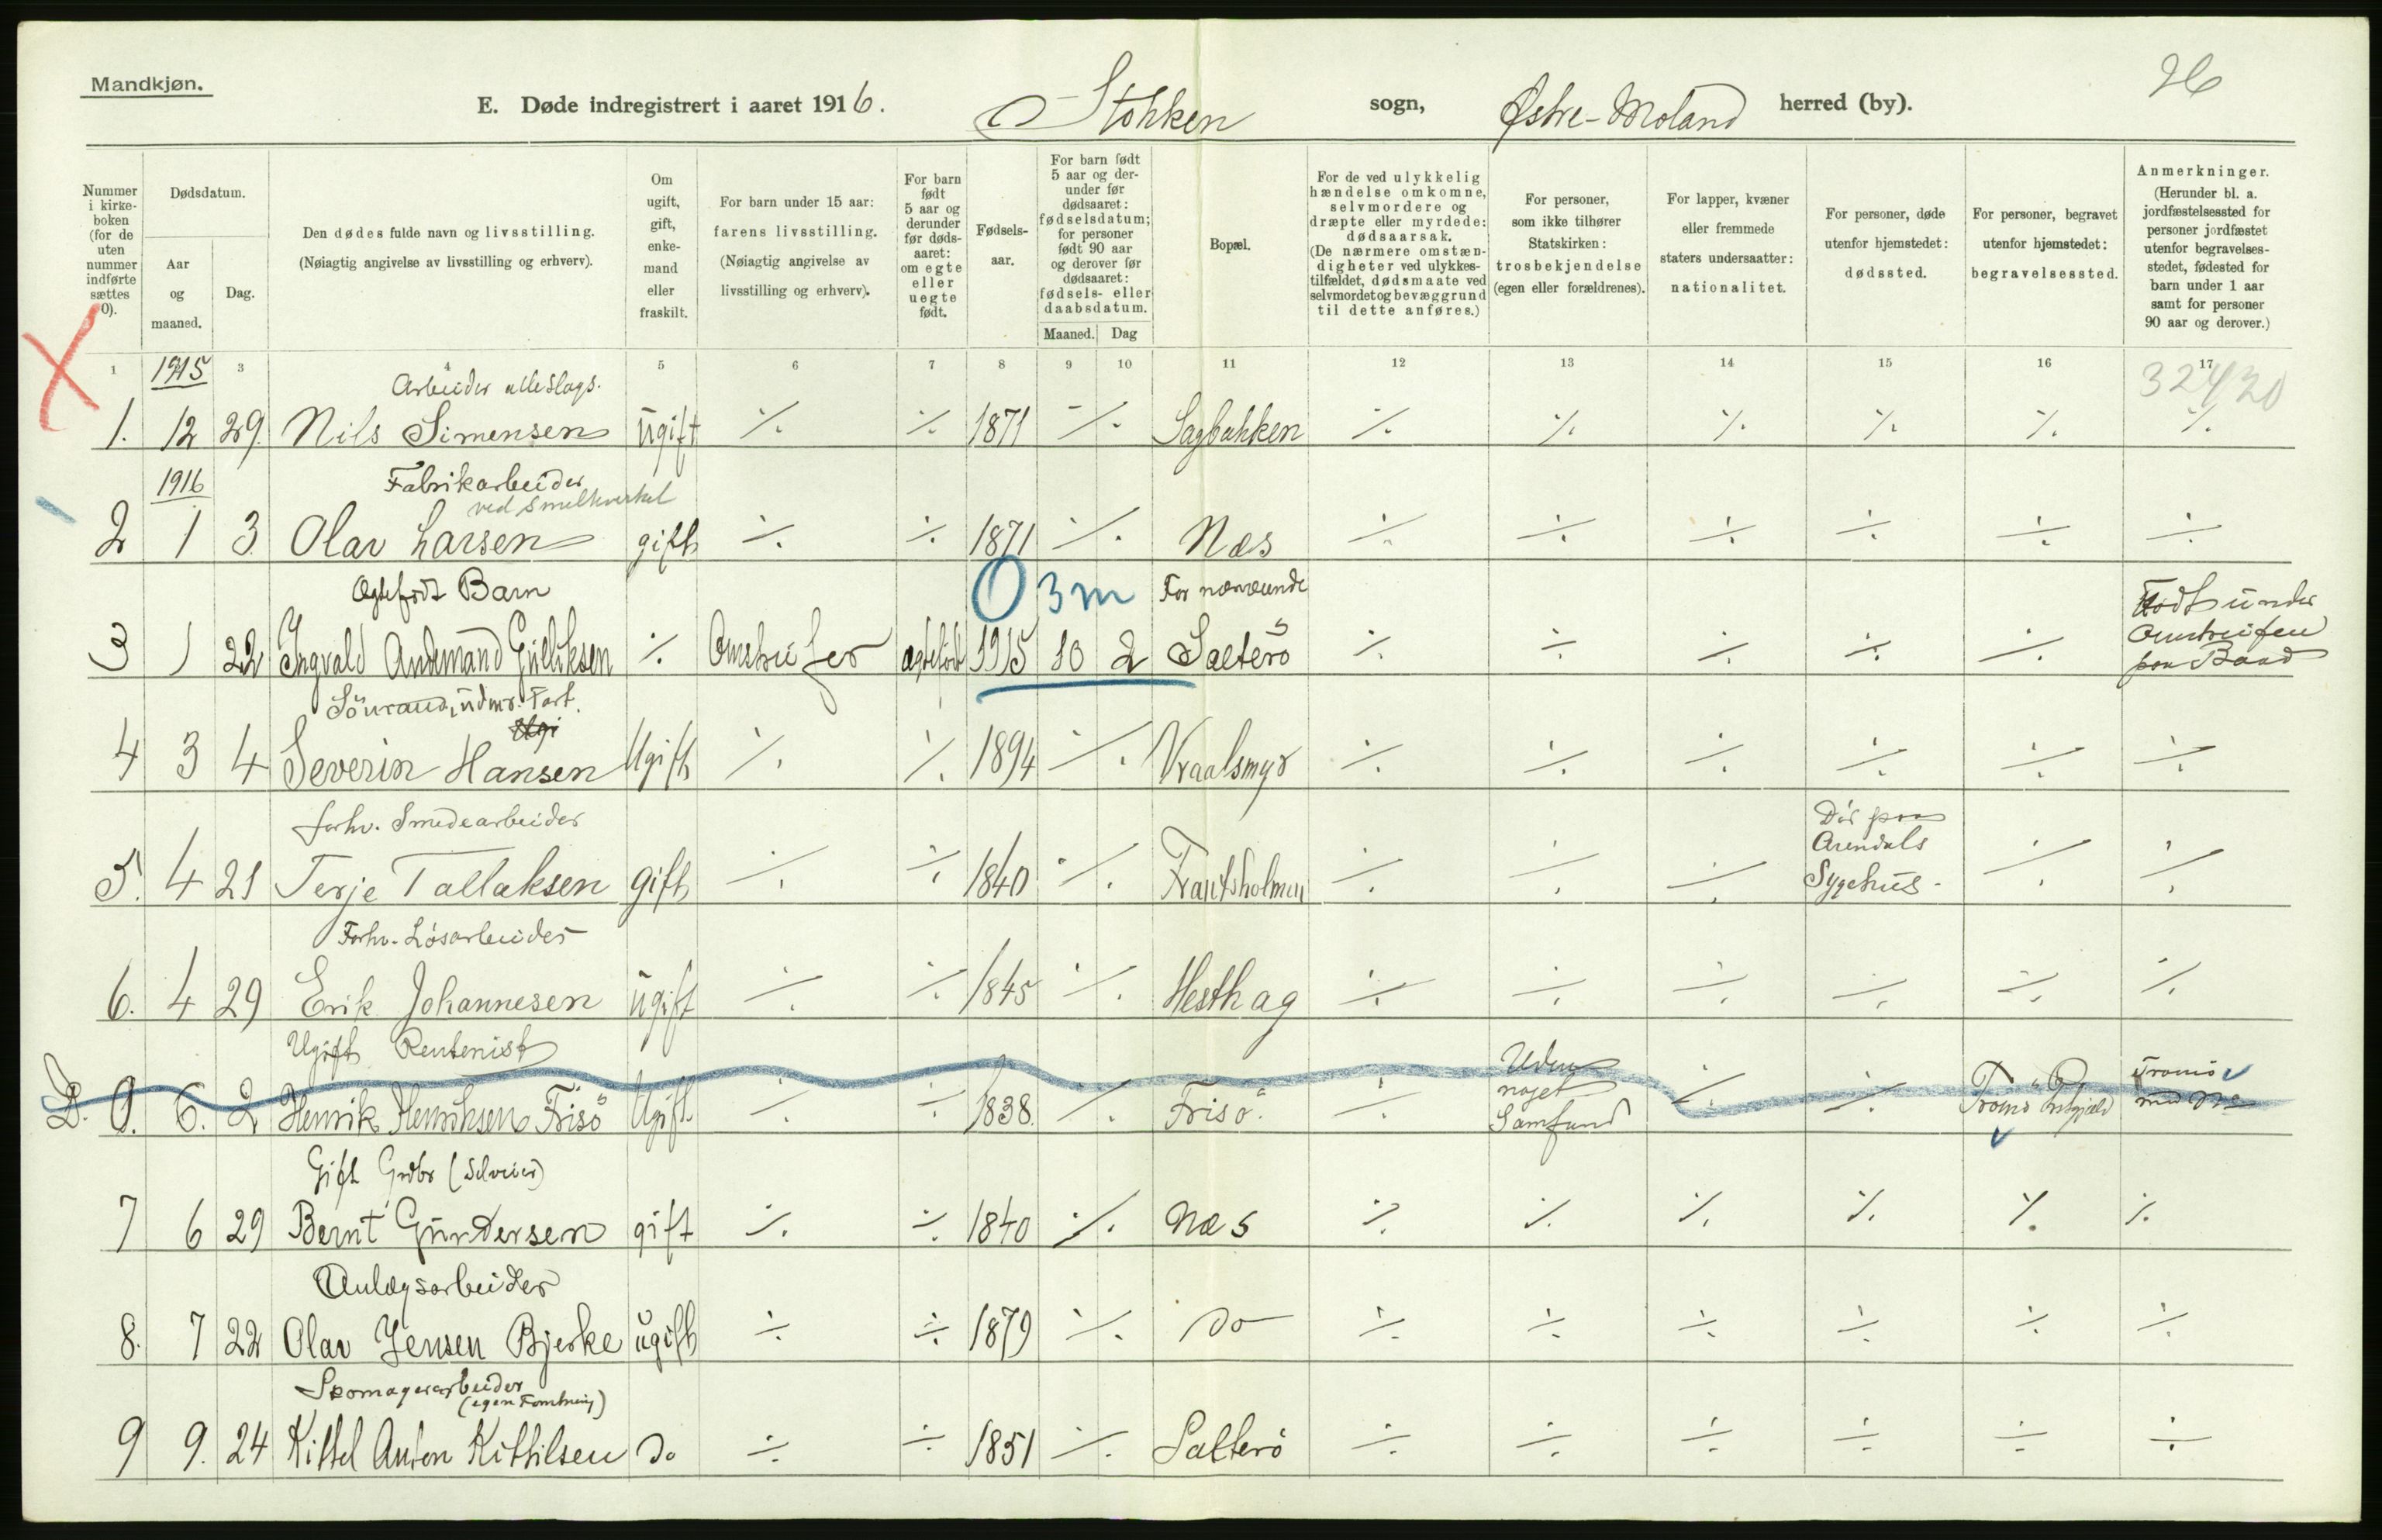 Mandkjøn.
26
E. Døde indregistrert i aaret 1916. Stokken sogn, Østre-Moland herred (by).
Nummer i kirkeboken (for de uten nummer indførte sættes 0).
Dødsdatum.
Aar og maaned.
Dag.
Den dødes fulde navn og livsstilling. (Nøiagtig angivelse av livsstilling og erhverv).
Om ugift, gift, enkemand eller fraskilt.
For barn under 15 aar: farens livsstilling. (Nøiagtig angivelse av livsstilling og erhverv).
For barn født 5 aar og derunder før dødsaaret: om egte eller uegte født.
Fødselsaar.
For barn født 5 aar og derunder før dødsaaret: fødselsdatum; for personer født 90 aar og derover før dødsaaret: fødsels- eller daabsdatum.
Maaned. Dag
Bopæl.
For de ved ulykkelig hændelse omkomne, selvmordere og dræpte eller myrdede: dødsaarsak. (De nærmere omstændigheter ved ulykkestilfældet, dødsmaate ved selvmordet og bevæggrund til dette anføres.)
For personer, som ikke tilhører Statskirken: trosbekjendelse (egen eller forældrenes).
For lapper, kvæner eller fremmede staters undersaatter: nationalitet.
For personer, døde utenfor hjemstedet: dødssted.
For personer, begravet utenfor hjemstedet: begravelsessted.
Anmerkninger. (Herunder bl. a. jordfæstelsessted for personer jordfæstet utenfor begravelsesstedet, fødested for barn under 1 aar samt for personer 90 aar og derover.)
1 3 4 5 6 7 8 9 10 11 12 13 14 15 16 17
1915
32420
Arbeider alleslags.
1. 12 29. Nils Simensen ugift ٪ ٪ 1871 ٪ Sagbakken ٪ ٪ ٪ ٪ ٪ ٪
1916
Fabrikarbeider
ved Smelteverket
2 1 3 Olav Larsen gift ÷ ÷ 1871 ٪ Næs ÷ ÷ ÷ ÷ ÷ ÷
Ægtefødt Barn
0 3 m
For nærværende
Født under
3 1 22 Ingvald Andemand Gulliksen ٪ Omstreifer ægtefødt 1915 10 2 Salterö ÷ ÷ ÷ ÷ ÷ Omstreifen
paa Baad
Sömand, udenr. Fart.
Ugi
4 3 4 Severin Hansen Ugift ٪ ٪ 1894 ٪ Vraalsmyr ÷ ÷ ÷ ÷ ÷ ÷
forhv. Smedearbeider
Dör paa
Arendals
5. 4 21 Terje Tallaksen gift ÷ ÷ 1840 ٪ Frantsholmen ÷ ÷ ÷ Sygehus - ÷ ÷
Forhv. Løsarbeider
6. 4 29 Erik Johannesen ugift ÷ ÷ 1845 ٪ Hesthag ÷ ÷ ÷ ÷ ÷ ٪
Ugift Rentenist
Uden
noget
Tromö
D. 0. 6. 2 Henrik Henriksen Frisö Ugift. ÷ ÷ 1838. ٪ Frisö. ÷ Samfund ٪ ٪ Tromö Prstgjæld
Gift Grdbr (Selveier)
7 6 29 Bernt Gundersen gift ٪ ÷ 1840 ٪ Næs ٪ ٪ ٪ ٪ ٪ ٪
Anlægsarbeider
8. 7 22 Olav Jensen Bjerke ugift ÷ ÷ 1879 ٪ do ÷ ÷ ÷ ÷ ÷ ÷
Skomagerarbeider
(egen Forretning)
9 9. 24 Kittel Anton Kittilsen do ÷ ÷ 1851 ٪ Salterö ÷ ÷ ÷ ÷ ÷ ÷